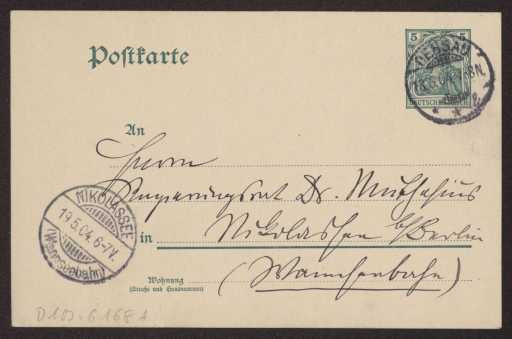 Postkarte
5 5
DEUTSCHES REICH
DESSAU
An
Herrn
Regierungsrat Dr. Muthesius
in Nikolassee b/Berlin
(Wannseebahn)
Wohnung
(Straße und Hausnummer)
NIKOLASSEE
19.5.04. 6-7V.
(Wannseebahn)
D 102-6168 A